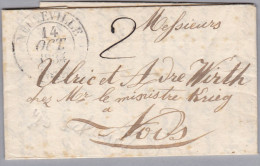 NEUVEVILLE
14
OCT.
2
Messieurs
Ulric et Andre Wirth
chez Mr le ministre Krieg
à
Nods